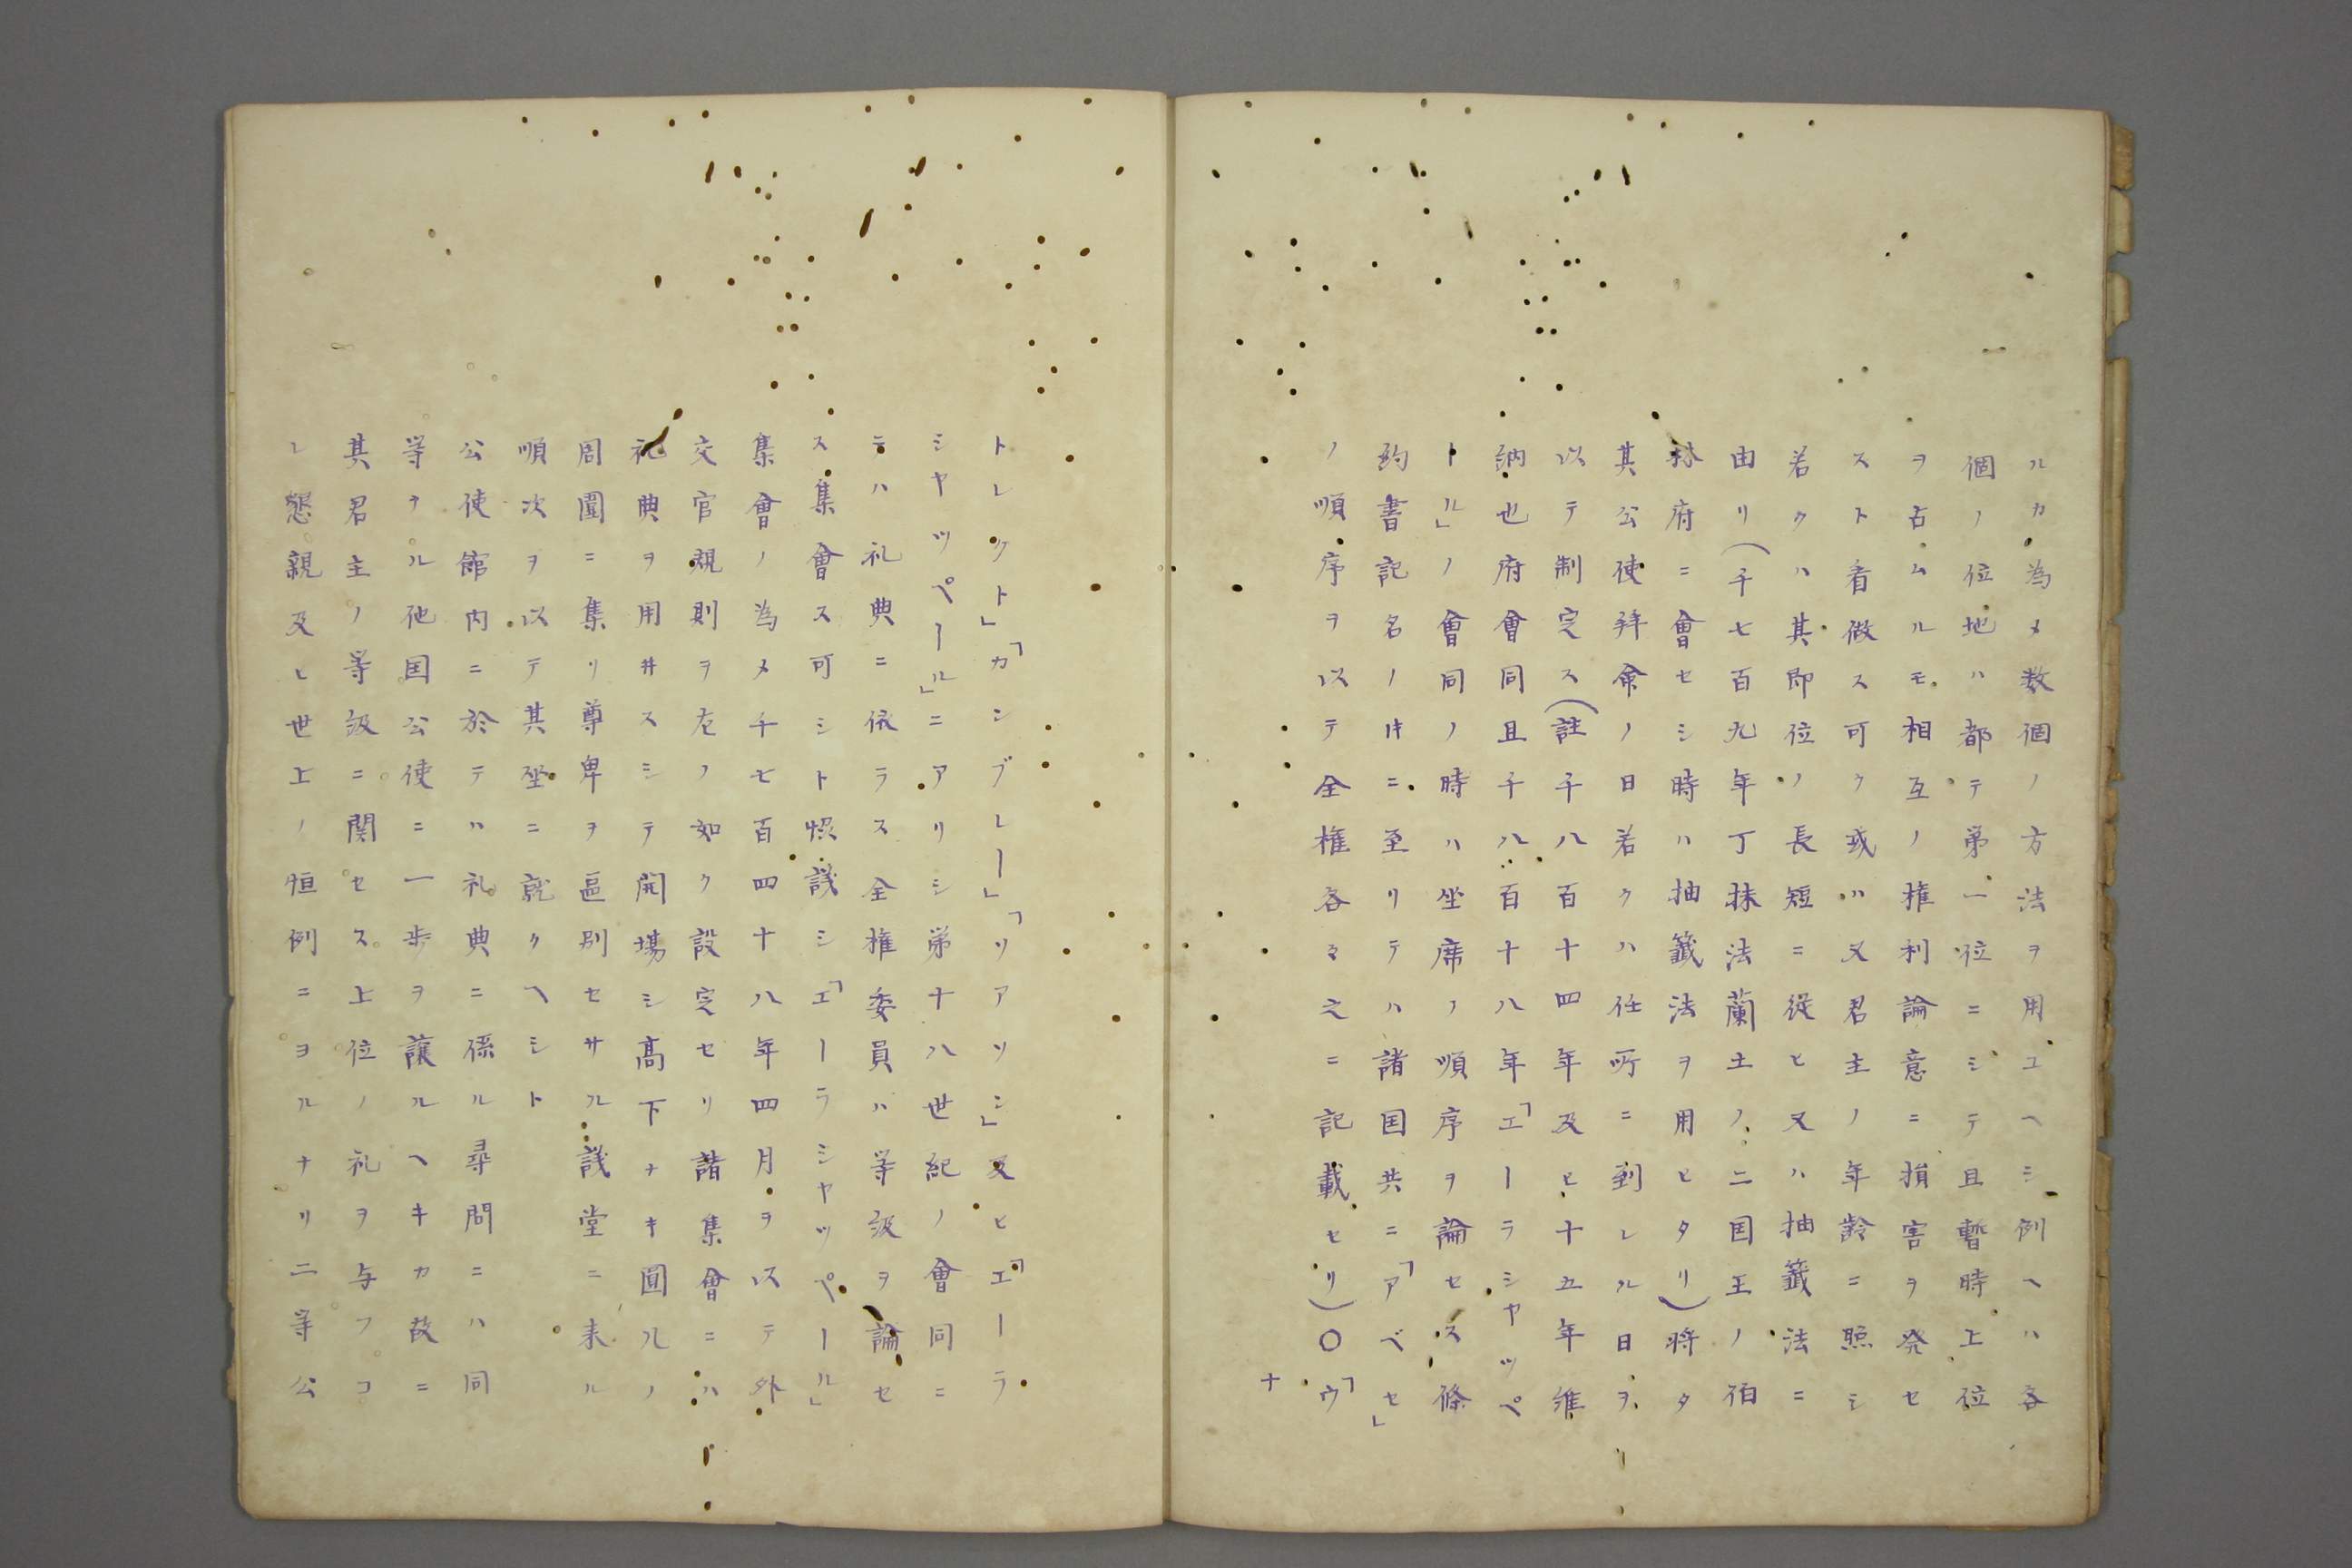 ルカ為メ数個ノ方法ヲ用ユヘシ例ヘハ各
個ノ位地ハ都テ第一位ニシテ且暫時上位
ヲ占ムルモ相互ノ権利論意ニ損害ヲ発セ
スト看做ス可ク或ハ又君主ノ年齢ニ照シ
若クハ其即位ノ長短ニ従ヒ又ハ抽籤法ニ
由リ(千七百九年丁抹法蘭土ノ二国王ノ伯
林府ニ會セシ時ハ抽籤法ヲ用ヒタリ)将タ
其公使拝命ノ日若クハ任所ニ到レル日ヲ
以テ制定ス(註千八百十四年及ヒ十五年維
納也府會同且千八百十八年「エーラシャッペ
ール」ノ會同ノ時ハ坐席ノ順序ヲ論セス條
約書記名ノ件ニ至リテハ諸国共ニ「アベセ」
ノ順序ヲ以テ全権各々之ニ記載セリ)〇「ウ
十
トレクト」「カンブレー」「リアソン」及ヒ「エーラ
シャッペール」ニアリシ第十八世紀ノ會同ニ
テハ礼典ニ依ラス全権委員ハ等級ヲ論セ
ス集會ス可シト熟議シ「エーラシャッペール」
集會ノ為メ千七百四十八年四月ヲ以テ外
交官規則ヲ左ノ如ク設定セリ諸集會ニハ
礼典ヲ用井スシテ開場シ高下ナキ圓几ノ
周圍ニ集リ尊卑ヲ區別セサル議堂ニ来ル
順次ヲ以テ其坐ニ就クヘシト
公使館内ニ於テハ礼典ニ係ル尋問ニハ同
等ナル他国公使ニ一歩ヲ譲ルヘキカ故ニ
其君主ノ等級ニ関セス上位ノ礼ヲ与フコ
レ懇親及ヒ世上ノ恒例ニヨルナリ二等公